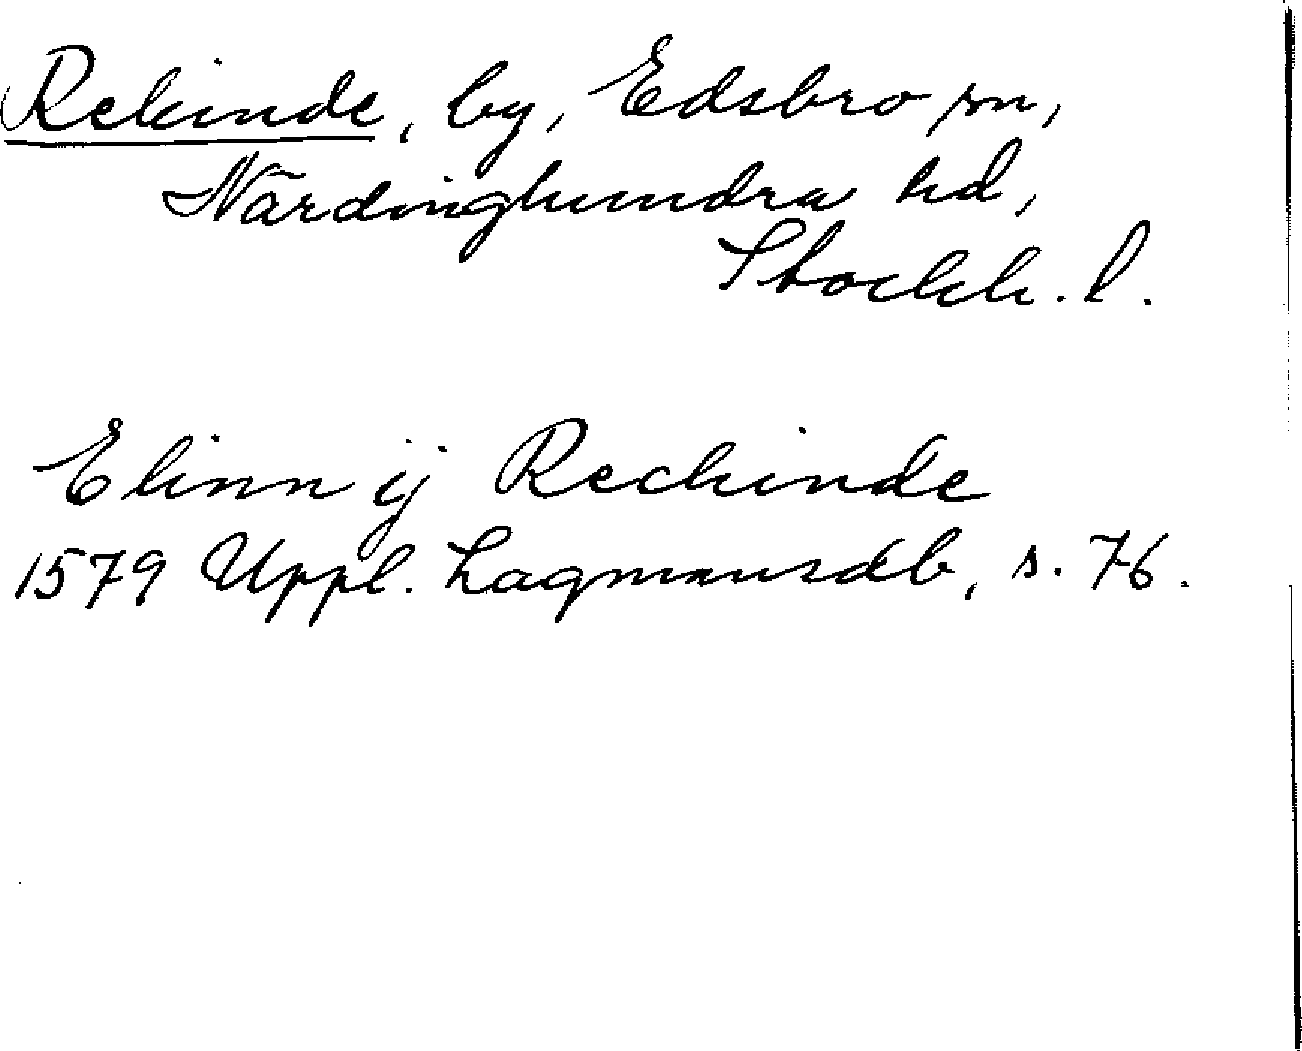 Rekinde, by, Edsbro sn,
Närdinghundra hd,
Stockh. l.
Elinn ij Rechinde
1579 Uppl. Lagmansdb, s. 76.